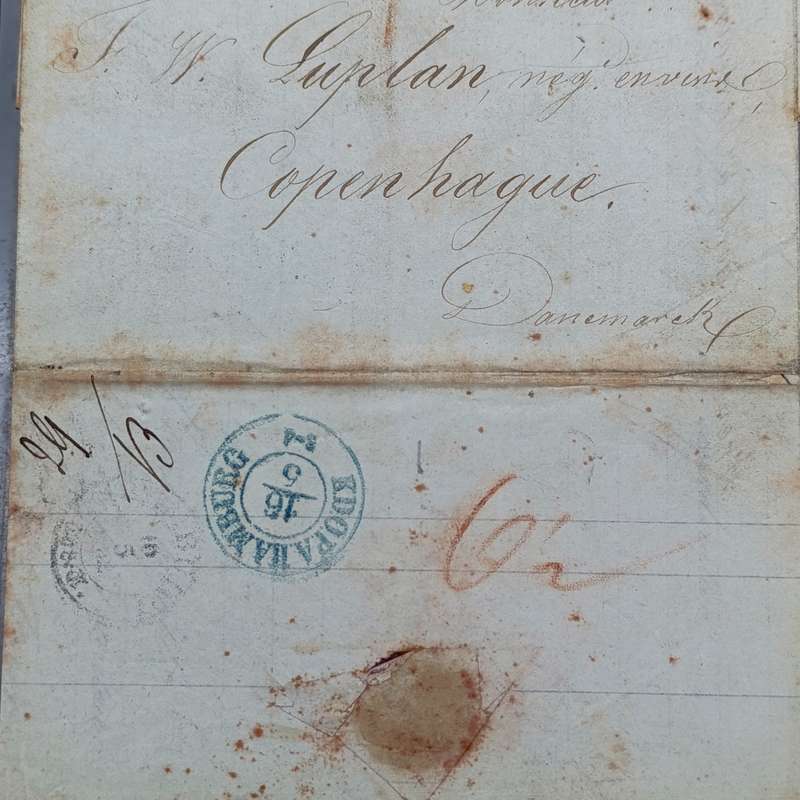 Monsieur
F. W. Luplan, nég.t environ
Copenhague.
Danemarck
29/13
KDOPA HAMBURG
16/5
6½